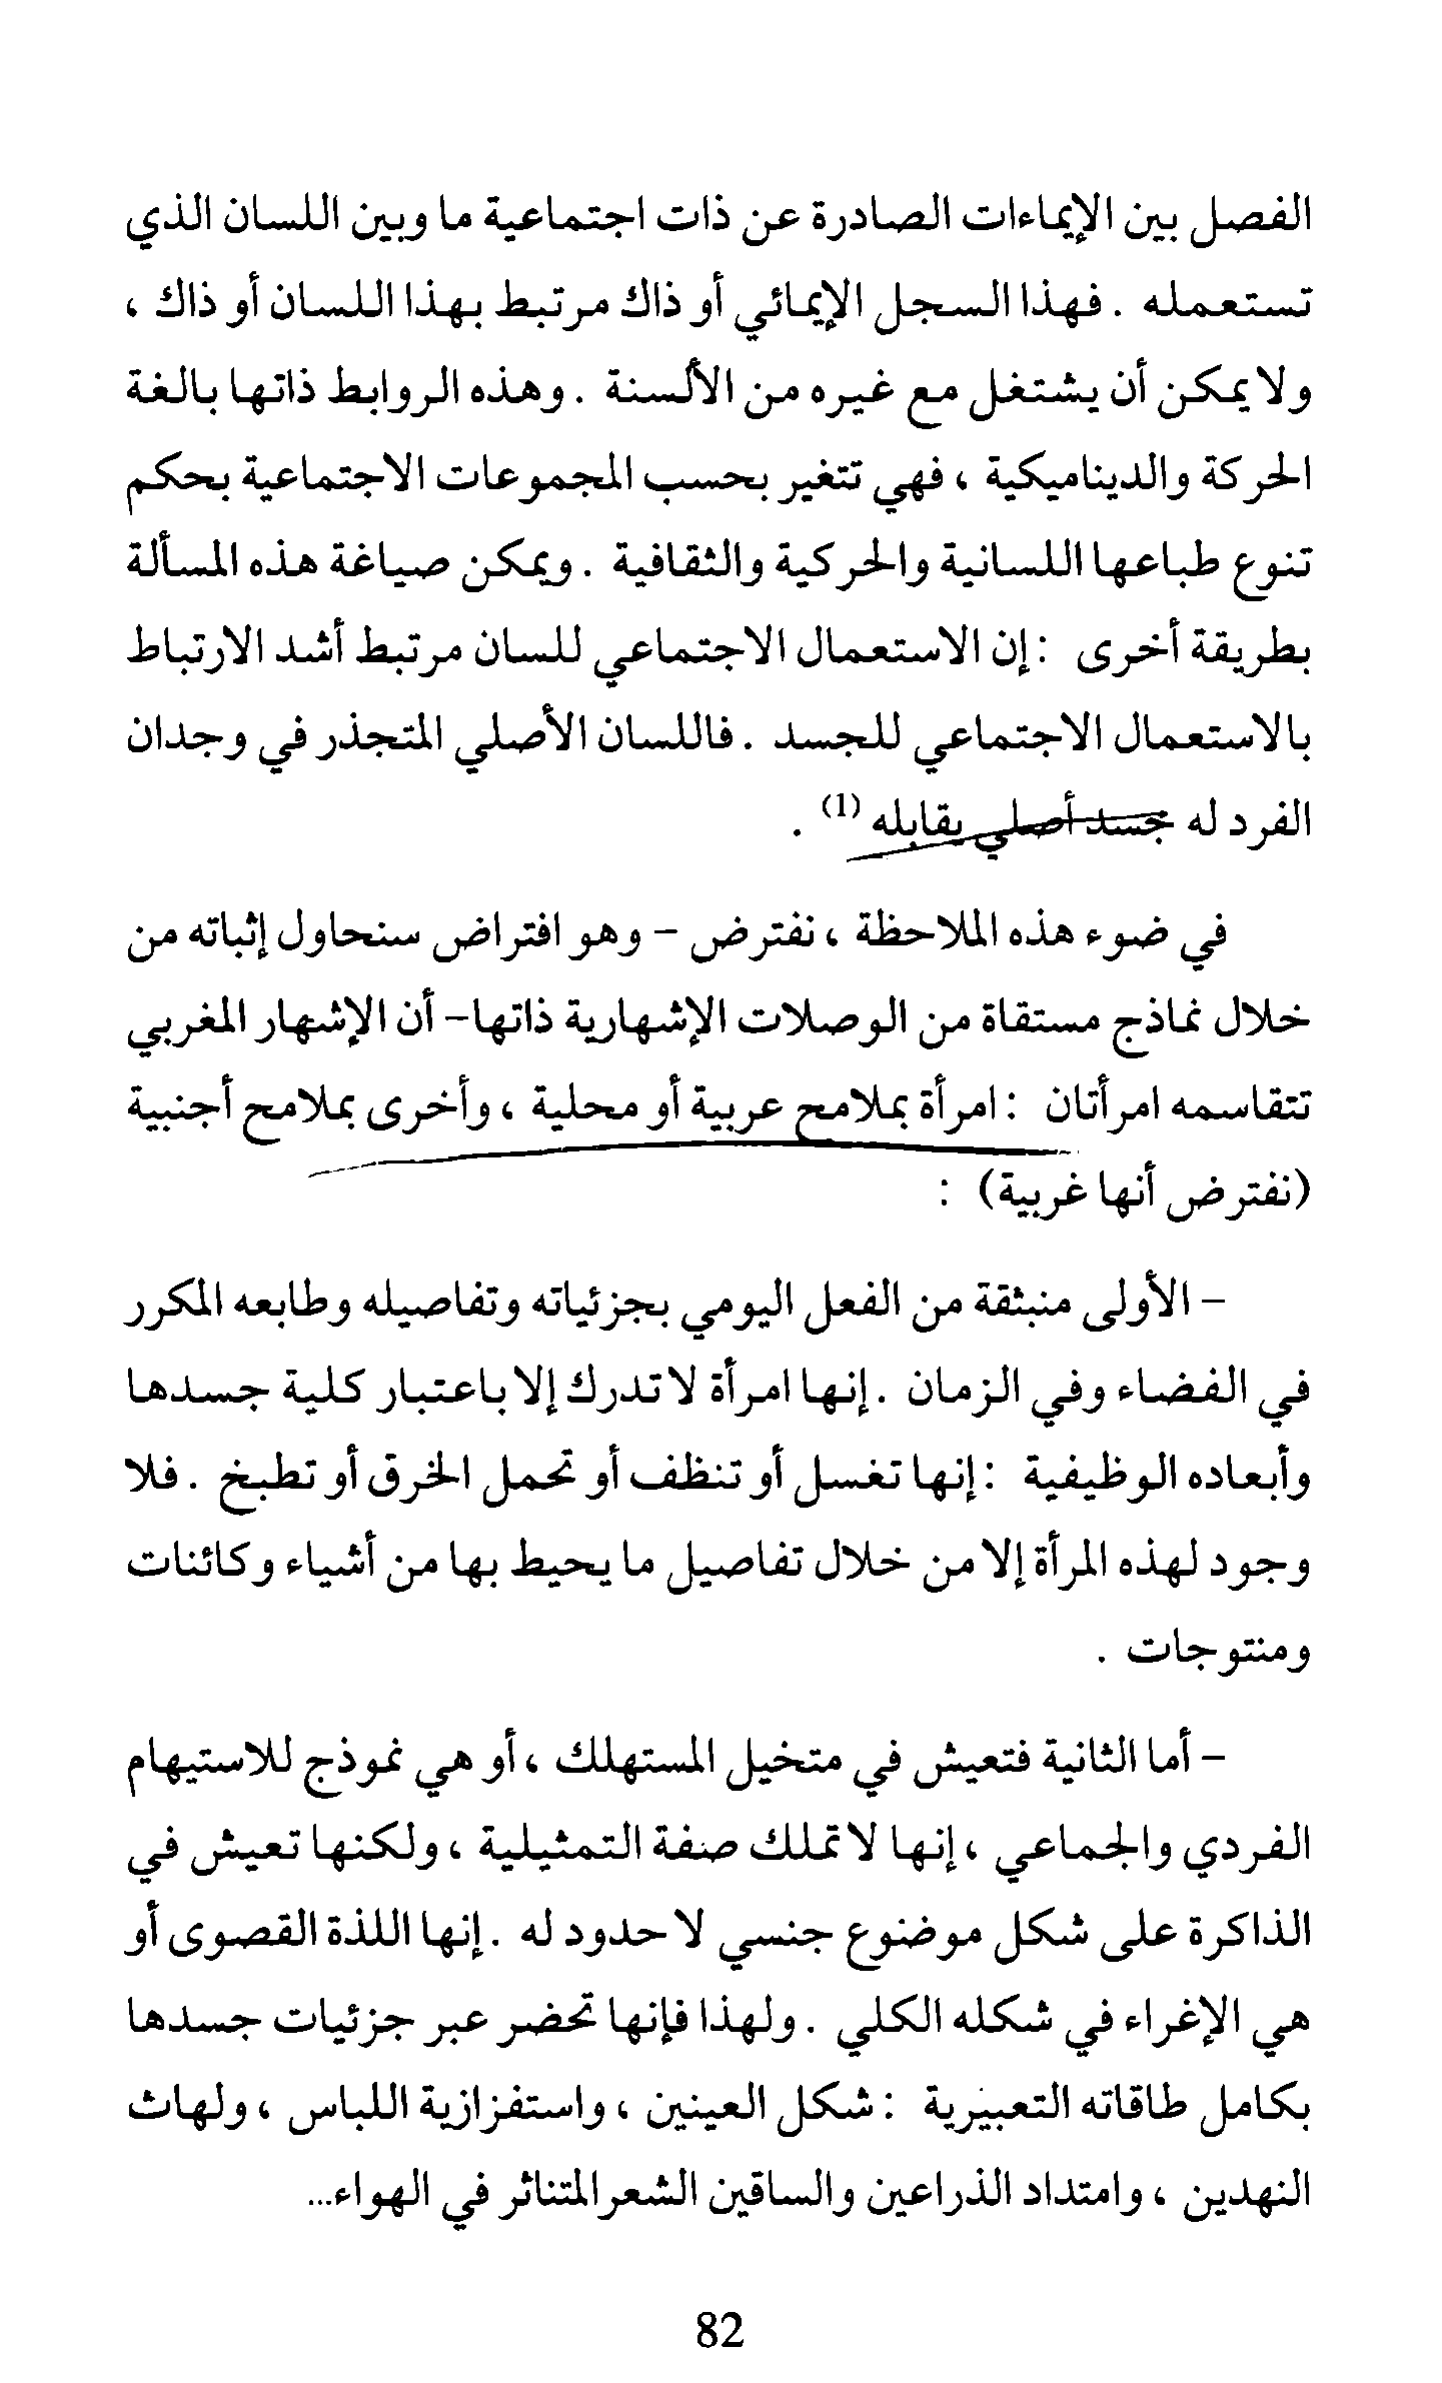 الفصل بين الإيماءات الصادرة عن ذات اجتماعية ما وبين اللسان الذي
تستعمله . فهذا السجل الإيمائي أو ذاك مرتبط بهذا اللسان أو ذاك ،
ولا يمكن أن يشتغل مع غيره من الألسنة . وهذه الروابط ذاتها بالغة
الحركة والديناميكية ، فهي تتغير بحسب المجموعات الاجتماعية بحكم
تنوع طباعها اللسانية والحركية والثقافية . ويمكن صياغة هذه المسألة
بطريقة أخرى : إن الاستعمال الاجتماعي للسان مرتبط أشد الارتباط
بالاستعمال الاجتماعي للجسد . فاللسان الأصلي المتجذر في وجدان
الفرد له جسد أصلي يقابله (1) .
في ضوء هذه الملاحظة ، نفترض - وهو افتراض سنحاول إثباته من
خلال نماذج مستقاة من الوصلات الإشهارية ذاتها- أن الإشهار المغربي
تتقاسمه امرأتان : امرأة بملامح عربية أو محلية ، وأخرى بملامح أجنبية
(نفترض أنها غربية) :
- الأولى منبثقة من الفعل اليومي بجزئياته وتفاصيله وطابعه المكرر
في الفضاء وفي الزمان . إنها امرأة لا تدرك إلا باعتبار كلية جسدها
وأبعاده الوظيفية : إنها تغسل أو تنظف أو تحمل الخرق أو تطبخ . فلا
وجود لهذه المرأة إلا من خلال تفاصيل ما يحيط بها من أشياء وكائنات
ومنتوجات .
- أما الثانية فتعيش في متخيل المستهلك ، أو هي نموذج للاستيهام
الفردي والجماعي ، إنها لا تملك صفة التمثيلية ، ولكنها تعيش في
الذاكرة على شكل موضوع جنسي لا حدود له . إنها اللذة القصوى أو
هي الإغراء في شكله الكلي . ولهذا فإنها تحضر عبر جزئيات جسدها
بكامل طاقاته التعبيرية : شكل العينين ، واستفزازية اللباس ، ولهاث
النهدين ، وامتداد الذراعين والساقين الشعر المتناثر في الهواء...
82